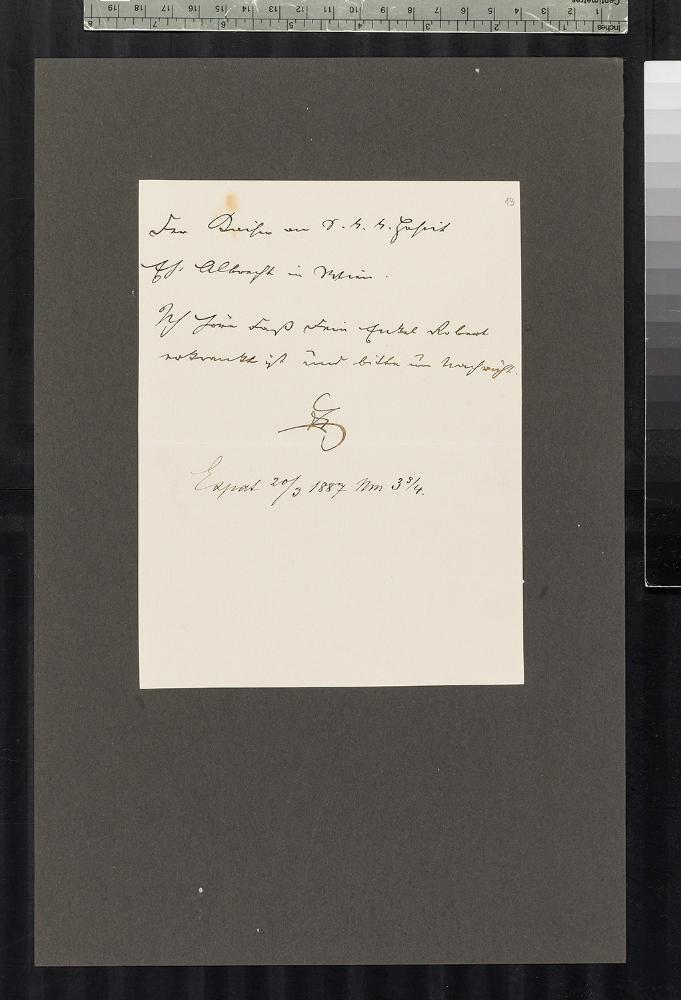 13
Der Kaiser an S. k. k. Hoheit
Eh. Albrecht in Wien.
Ich höre daß Dein Enkel Robert
erkrankt ist und bitte um Nachricht.
Expdt 20/3 1887 Nm 3 3/4.